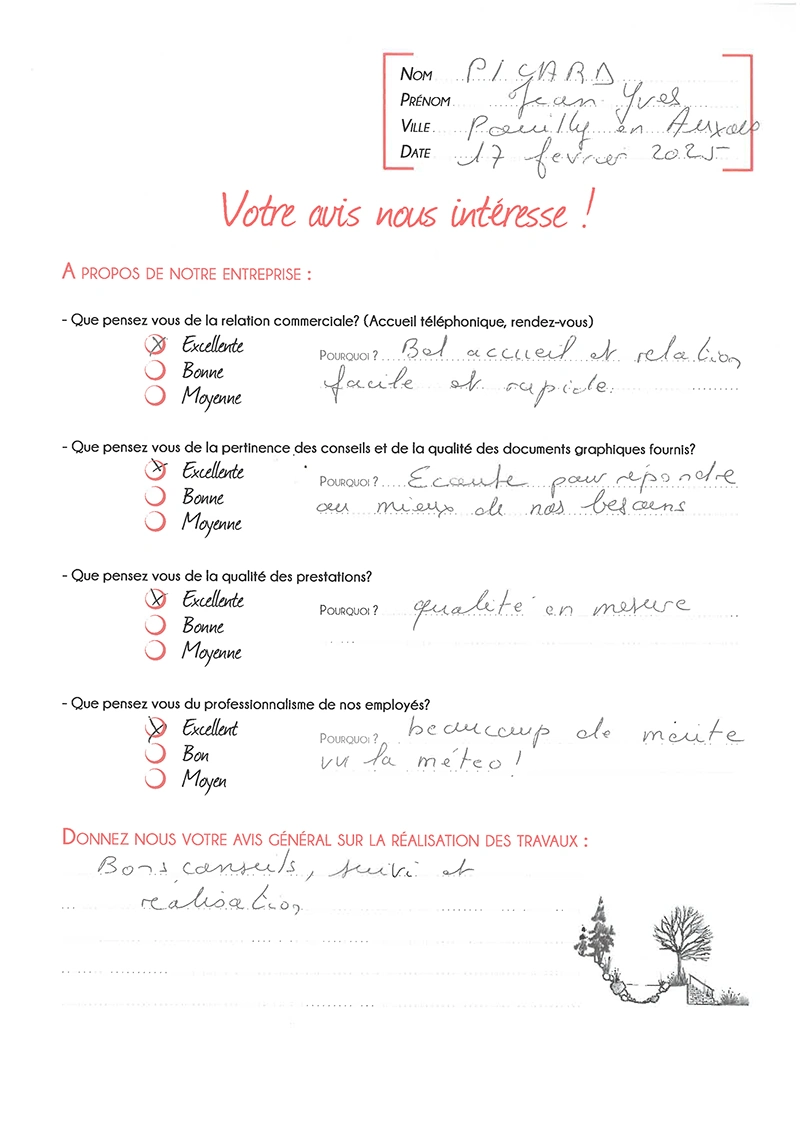 NOM PICARD
PRÉNOM Jean Yves
VILLE Pouilly en Auxois
DATE 17 fevrier 2025
Votre avis nous intéresse !
A PROPOS DE NOTRE ENTREPRISE :
- Que pensez vous de la relation commerciale? (Accueil téléphonique, rendez-vous)
X Excellente
POURQUOI ? Bel accueil et relation
Bonne
facile et rapide.
Moyenne
- Que pensez vous de la pertinence des conseils et de la qualité des documents graphiques fournis?
X Excellente
POURQUOI ? Ecoute pour répondre
Bonne
au mieux de nos besoins
Moyenne
- Que pensez vous de la qualité des prestations?
X Excellente
POURQUOI ? qualité en mesure
Bonne
Moyenne
- Que pensez vous du professionnalisme de nos employés?
X Excellent
POURQUOI ? beaucoup de mérite
Bon
vu la météo !
Moyen
DONNEZ NOUS VOTRE AVIS GÉNÉRAL SUR LA RÉALISATION DES TRAVAUX :
Bons conseils, suivi et
réalisation